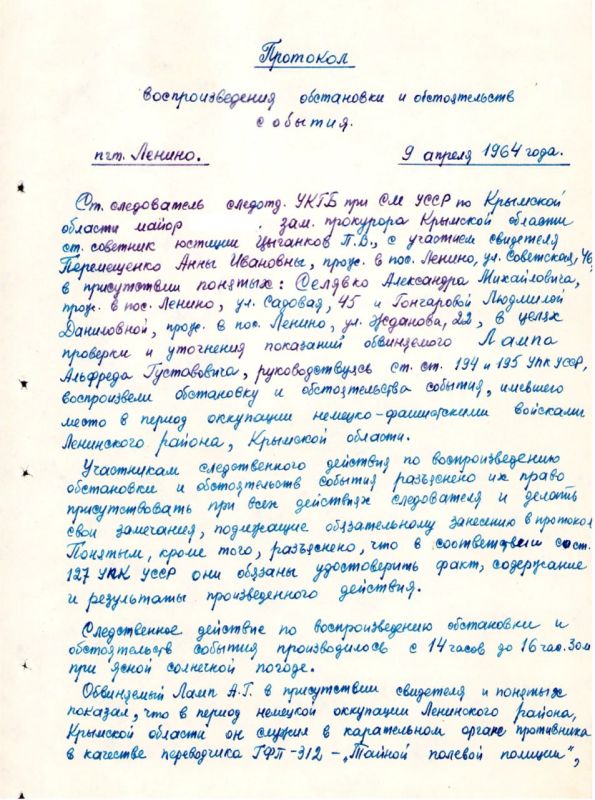 Протокол
воспроизведения обстановки и обстоятельств
события.
пгт. Ленино. 9 апреля 1964 года.
Ст. следователь следотд. УКГБ при СМ УССР по Крымской
области майор , зам. прокурора Крымской области
ст. советник юстиции Цыганков П.В., с участием свидетеля
Перемещенко Анны Ивановны, прож. в пос. Ленино, ул. Советская, 46,
в присутствии понятых: Селявко Александра Михайловича,
прож. в пос. Ленино, ул. Садовая, 45 и Гончаровой Людмилой
Даниловной, прож. в пос. Ленино, ул. Жданова, 22, в целях
проверки и уточнения показаний обвиняемого Лампа
Альфреда Густавовича, руководствуясь ст. ст. 194 и 195 УПК УССР,
воспроизвели обстановку и обстоятельства события, имевшего
место в период оккупации немецко-фашистскими войсками
Ленинского района, Крымской области.
Участникам следственного действия по воспроизведению
обстановки и обстоятельств события разъяснено их право
присутствовать при всех действиях следователя и делать
свои замечания, подлежащие обязательному занесению в протокол
Понятым, кроме того, разъяснено, что в соответствии со ст.
127 УПК УССР они обязаны удостоверить факт, содержание
и результаты произведенного действия.
Следственное действие по воспроизведению обстановки и
обстоятельств события производилось с 14 часов до 16 час. 30м
при ясной солнечной погоде.
Обвиняемый Ламп А.Г. в присутствии свидетеля и понятых
показал, что в период немецкой оккупации Ленинского района,
Крымской области он служил в карательном органе противника
в качестве переводчика ГФП-312 – „Тайной полевой полиции",